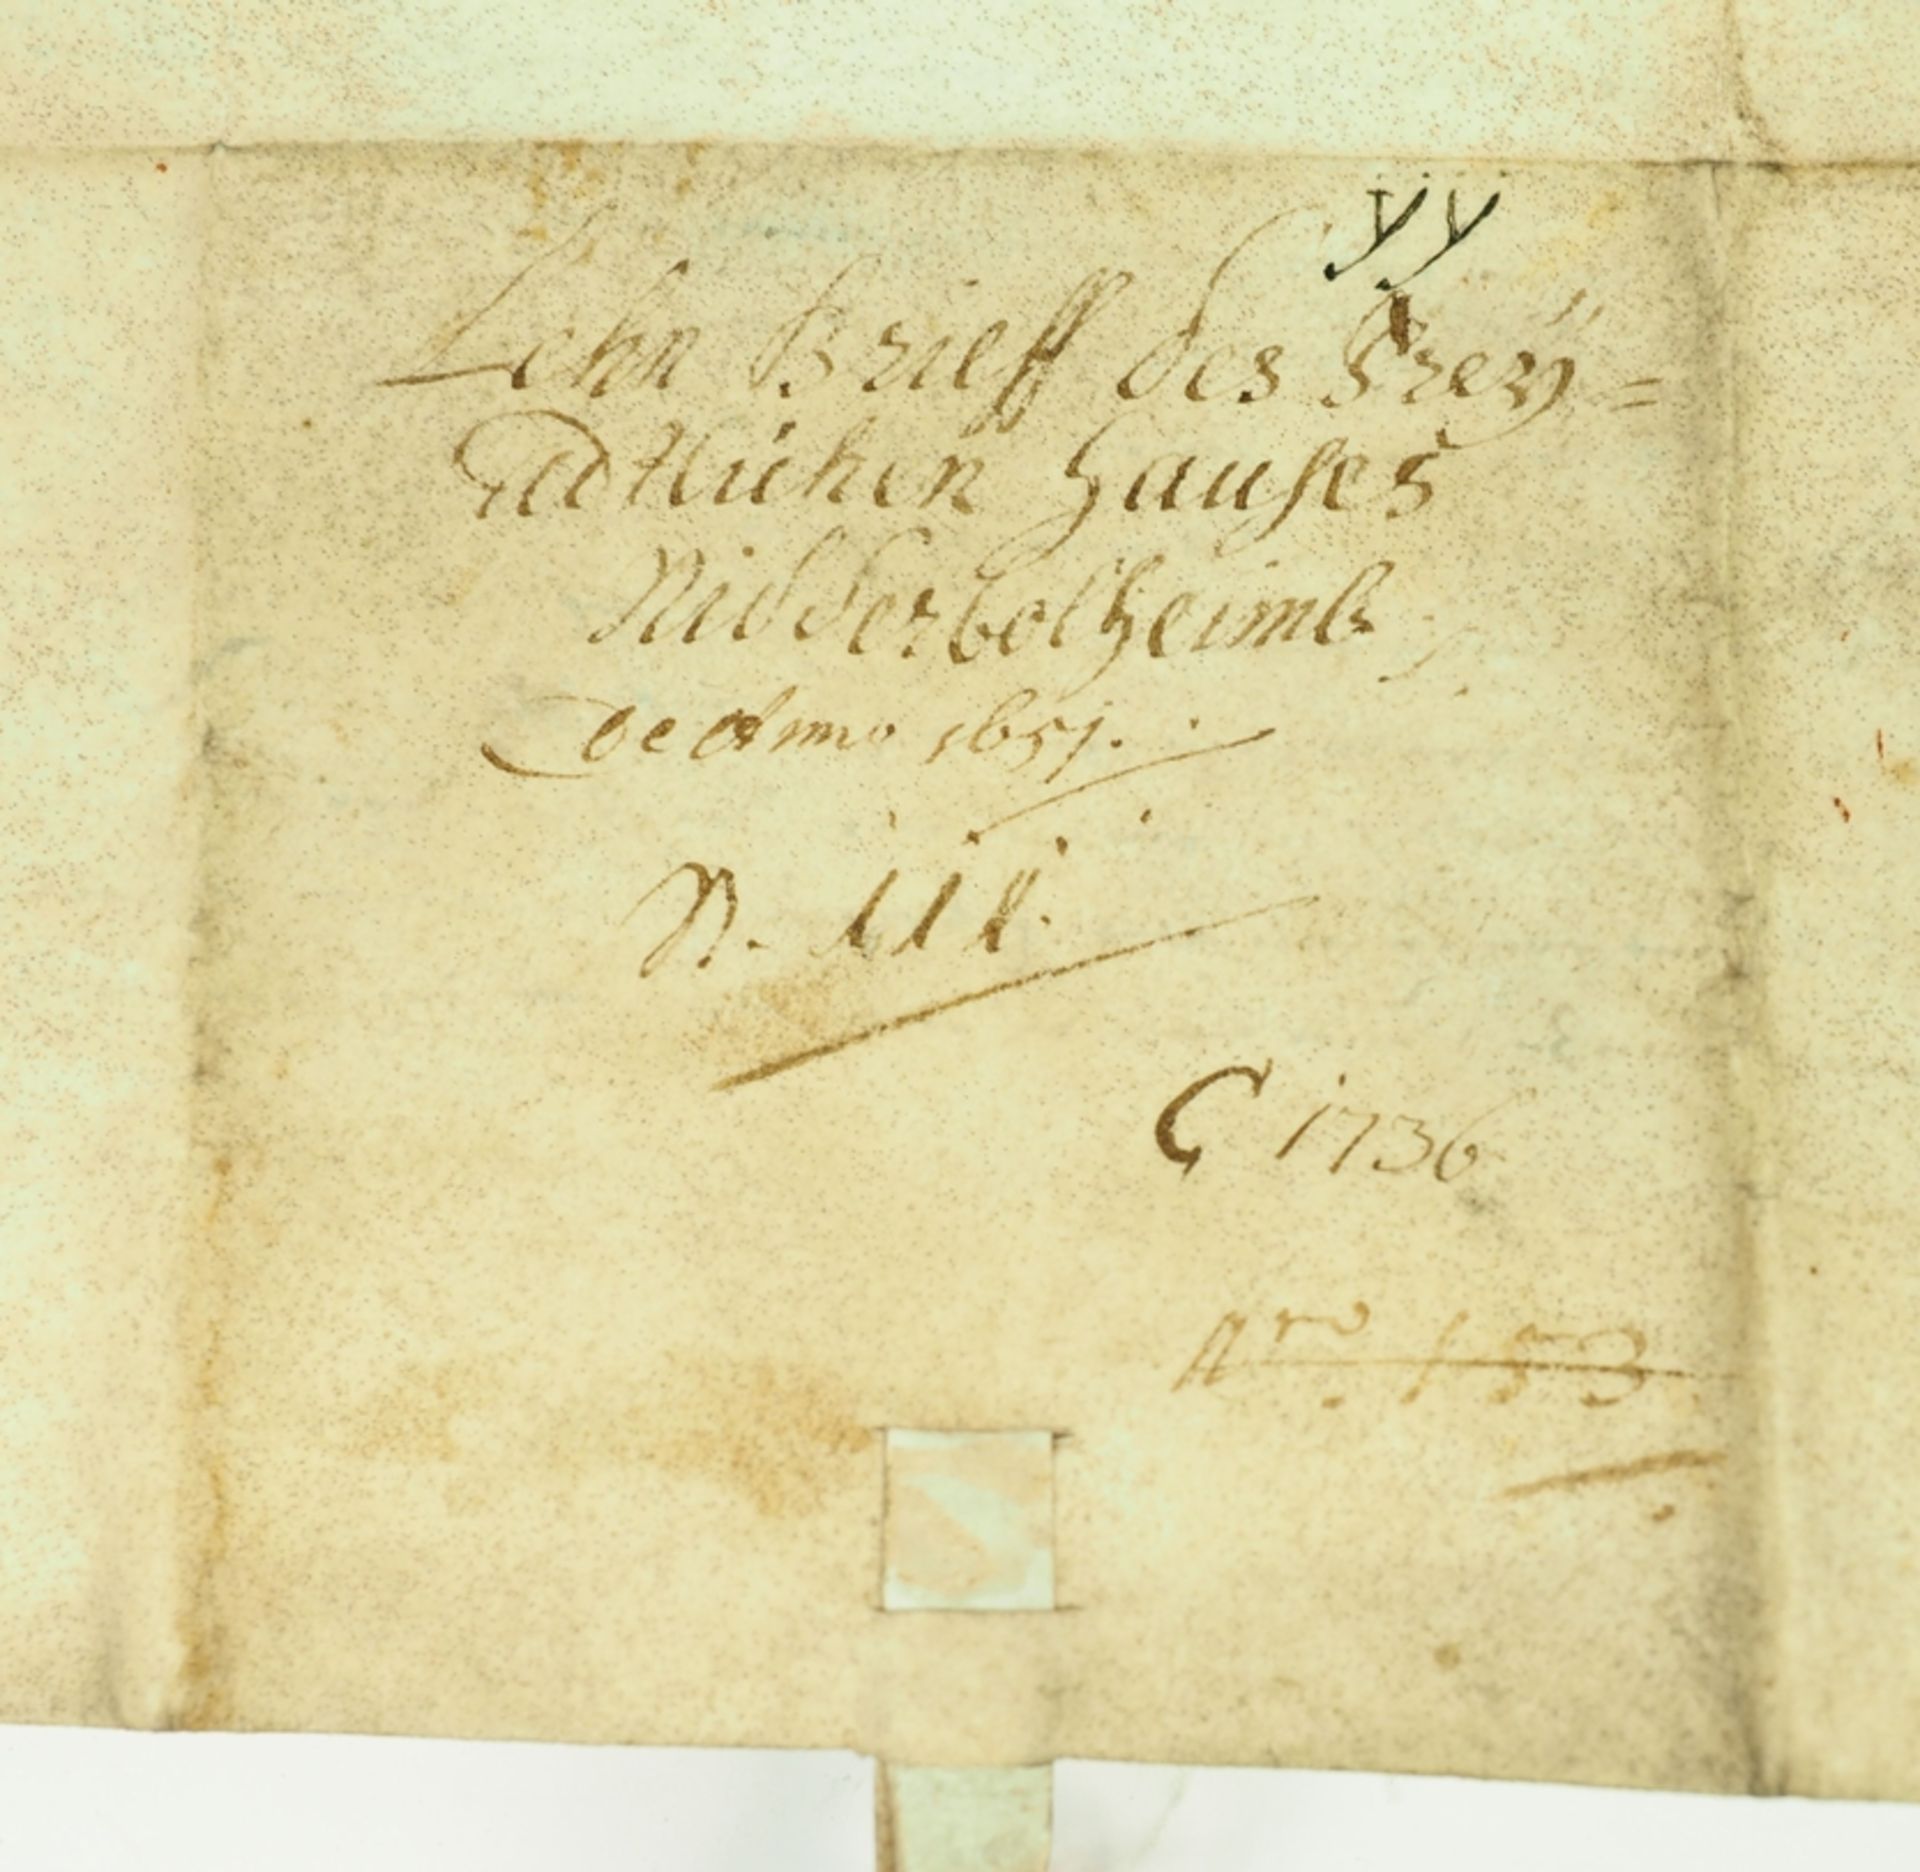 yy
Lehn Brieff des Freÿ=
Adtlichen Hauses
Nidderbolheimb
de Anno 1651.
N. 111.
C 1736
Nro. 153